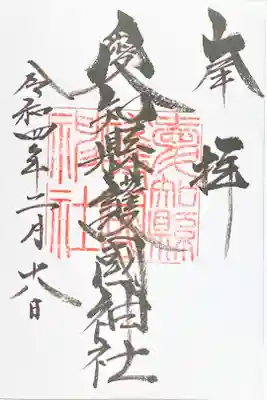 奉拝
愛知縣護國神社
愛知縣護國神社
令和四年二月十八日